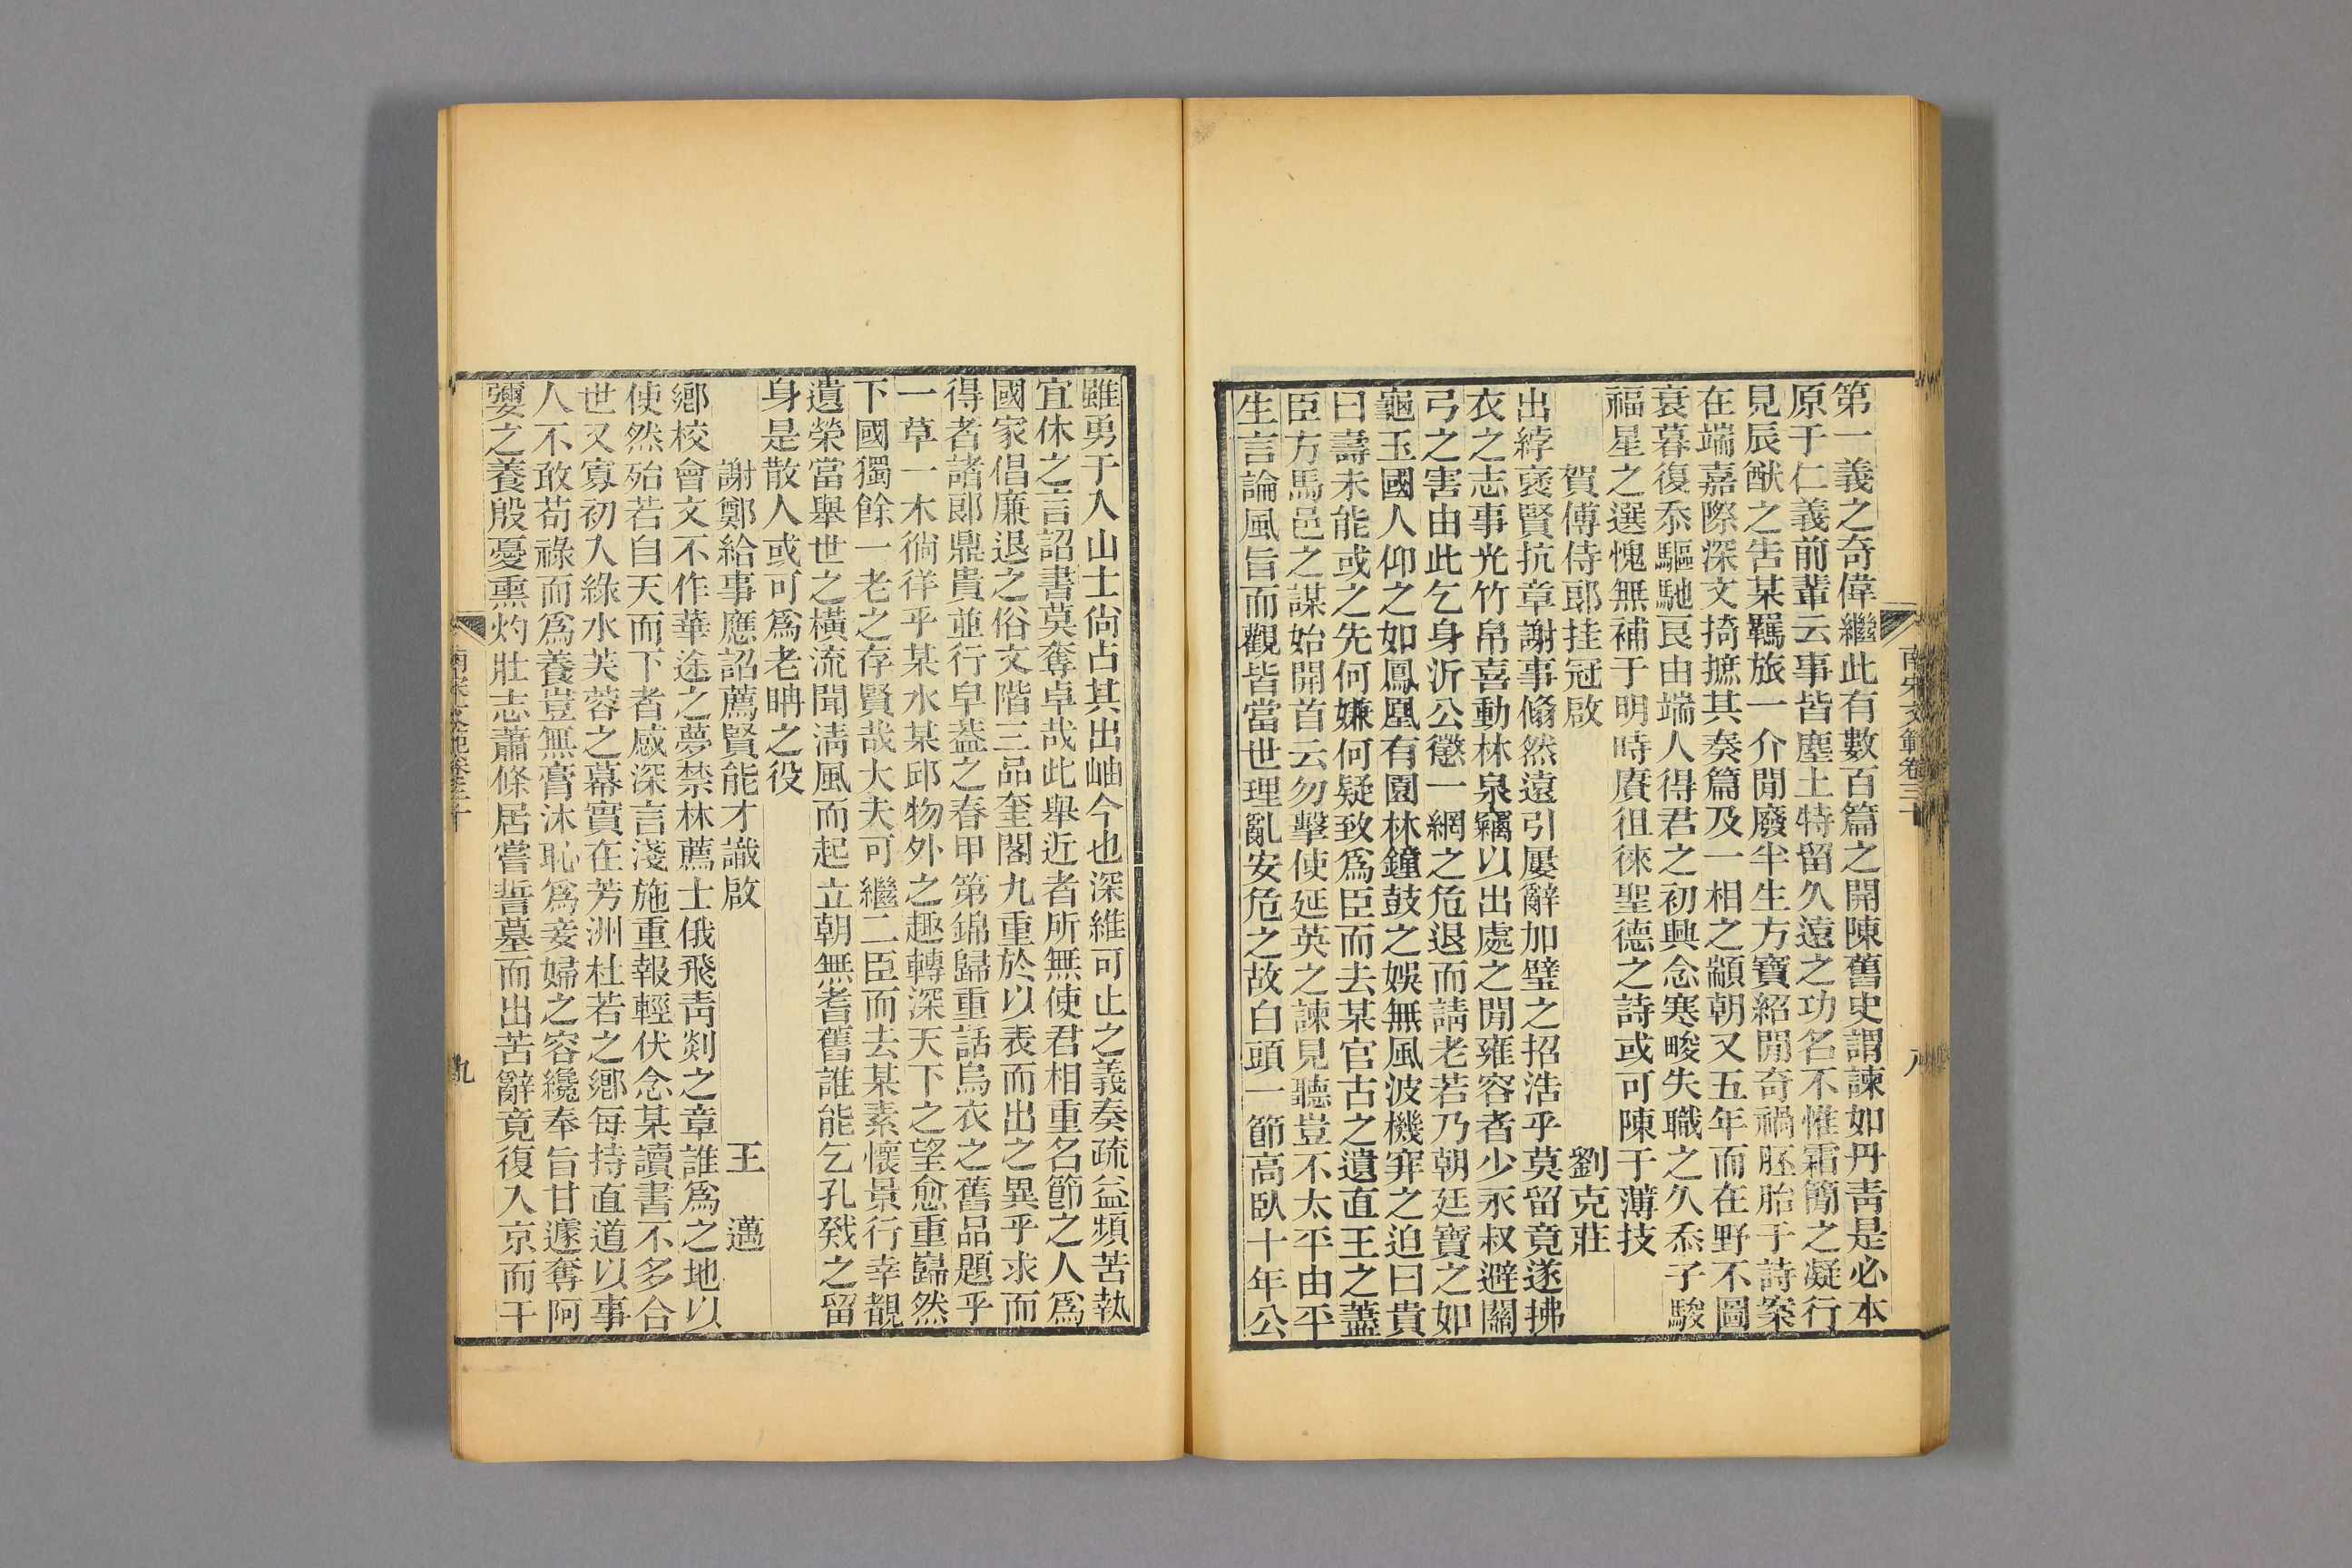 第一義之奇偉繼此有數百篇之開陳舊史謂諫如丹靑是必本
原于仁義前輩云事皆塵土特留久遠之功名不惟霜簡之凝行
見辰猷之吿某羈旅一介閒廢半生方寶紹閒奇禍胚胎于詩案
在端嘉際深文掎摭其奏篇及一相之顓朝又五年而在野不圖
衰暮復忝驅馳良由端人得君之初興念寒畯失職之久忝子駿
福星之選愧無補于明時賡徂徠聖德之詩或可陳于薄技
賀傅侍郞挂冠啟 劉克莊
出綍褒賢抗章謝事翛然遠引屢辭加璧之招浩乎莫留竟遂拂
衣之志事光竹帛喜動林泉竊以出處之閒雍容者少永叔避關
弓之害由此乞身沂公懲一網之危退而請老若乃朝廷寶之如
龜玉國人仰之如鳳凰有園林鐘鼓之娛無風波機穽之迫曰貴
曰壽未能或之先何嫌何疑致爲臣而去某官古之遺直王之藎
臣方馬邑之謀始開首云勿擊使延英之諫見聽豈不太平由平
生言論風旨而觀皆當世理亂安危之故白頭一節高臥十年公
南宋文範卷三十
八
雖勇于入山士尙占其出岫今也深維可止之義奏疏益頻苦執
宜休之言詔書莫奪卓哉此舉近者所無使君相重名節之人爲
國家倡廉退之俗文階三品奎閣九重於以表而出之異乎求而
得者諸郞鼎貴並行皁蓋之春甲第錦歸重話烏衣之舊品題乎
一草一木徜徉乎某水某邱物外之趣轉深天下之望愈重巋然
下國獨餘一老之存賢哉大夫可繼二臣而去某素懷景行幸覩
遺榮當舉世之橫流聞淸風而起立朝無耆舊誰能乞孔戣之留
身是散人或可爲老聃之役
謝鄭給事應詔薦賢能才識啟 王邁
鄕校會文不作華途之夢禁林薦士俄飛靑剡之章誰爲之地以
使然殆若自天而下者感深言淺施重報輕伏念某讀書不多合
世又寡初入綠水芙蓉之幕實在芳洲杜若之鄕每持直道以事
人不敢苟祿而爲養豈無膏沐恥爲妾婦之容纔奉旨甘遽奪阿
㜷之養殷憂熏灼壯志蕭條居嘗誓墓而出苦辭竟復入京而干
南宋文範卷三十
九